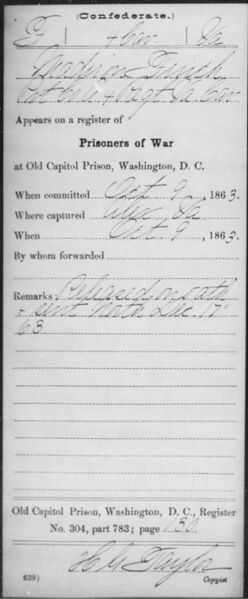 (Confederate.)
F | 4 Cav | Va
Pvt Co. F 4 Regt Va Cav
Appears on a register of
Prisoners of War
at Old Capitol Prison, Washington, D. C.
When committed Oct 9, 1863.
Where captured Va
When Oct 9, 1863.
By whom forwarded
Remarks: Released on oath
& sent North Dec 17
63
Old Capitol Prison, Washington, D. C., Register
No. 304, part 783; page 130
(639) Copyist